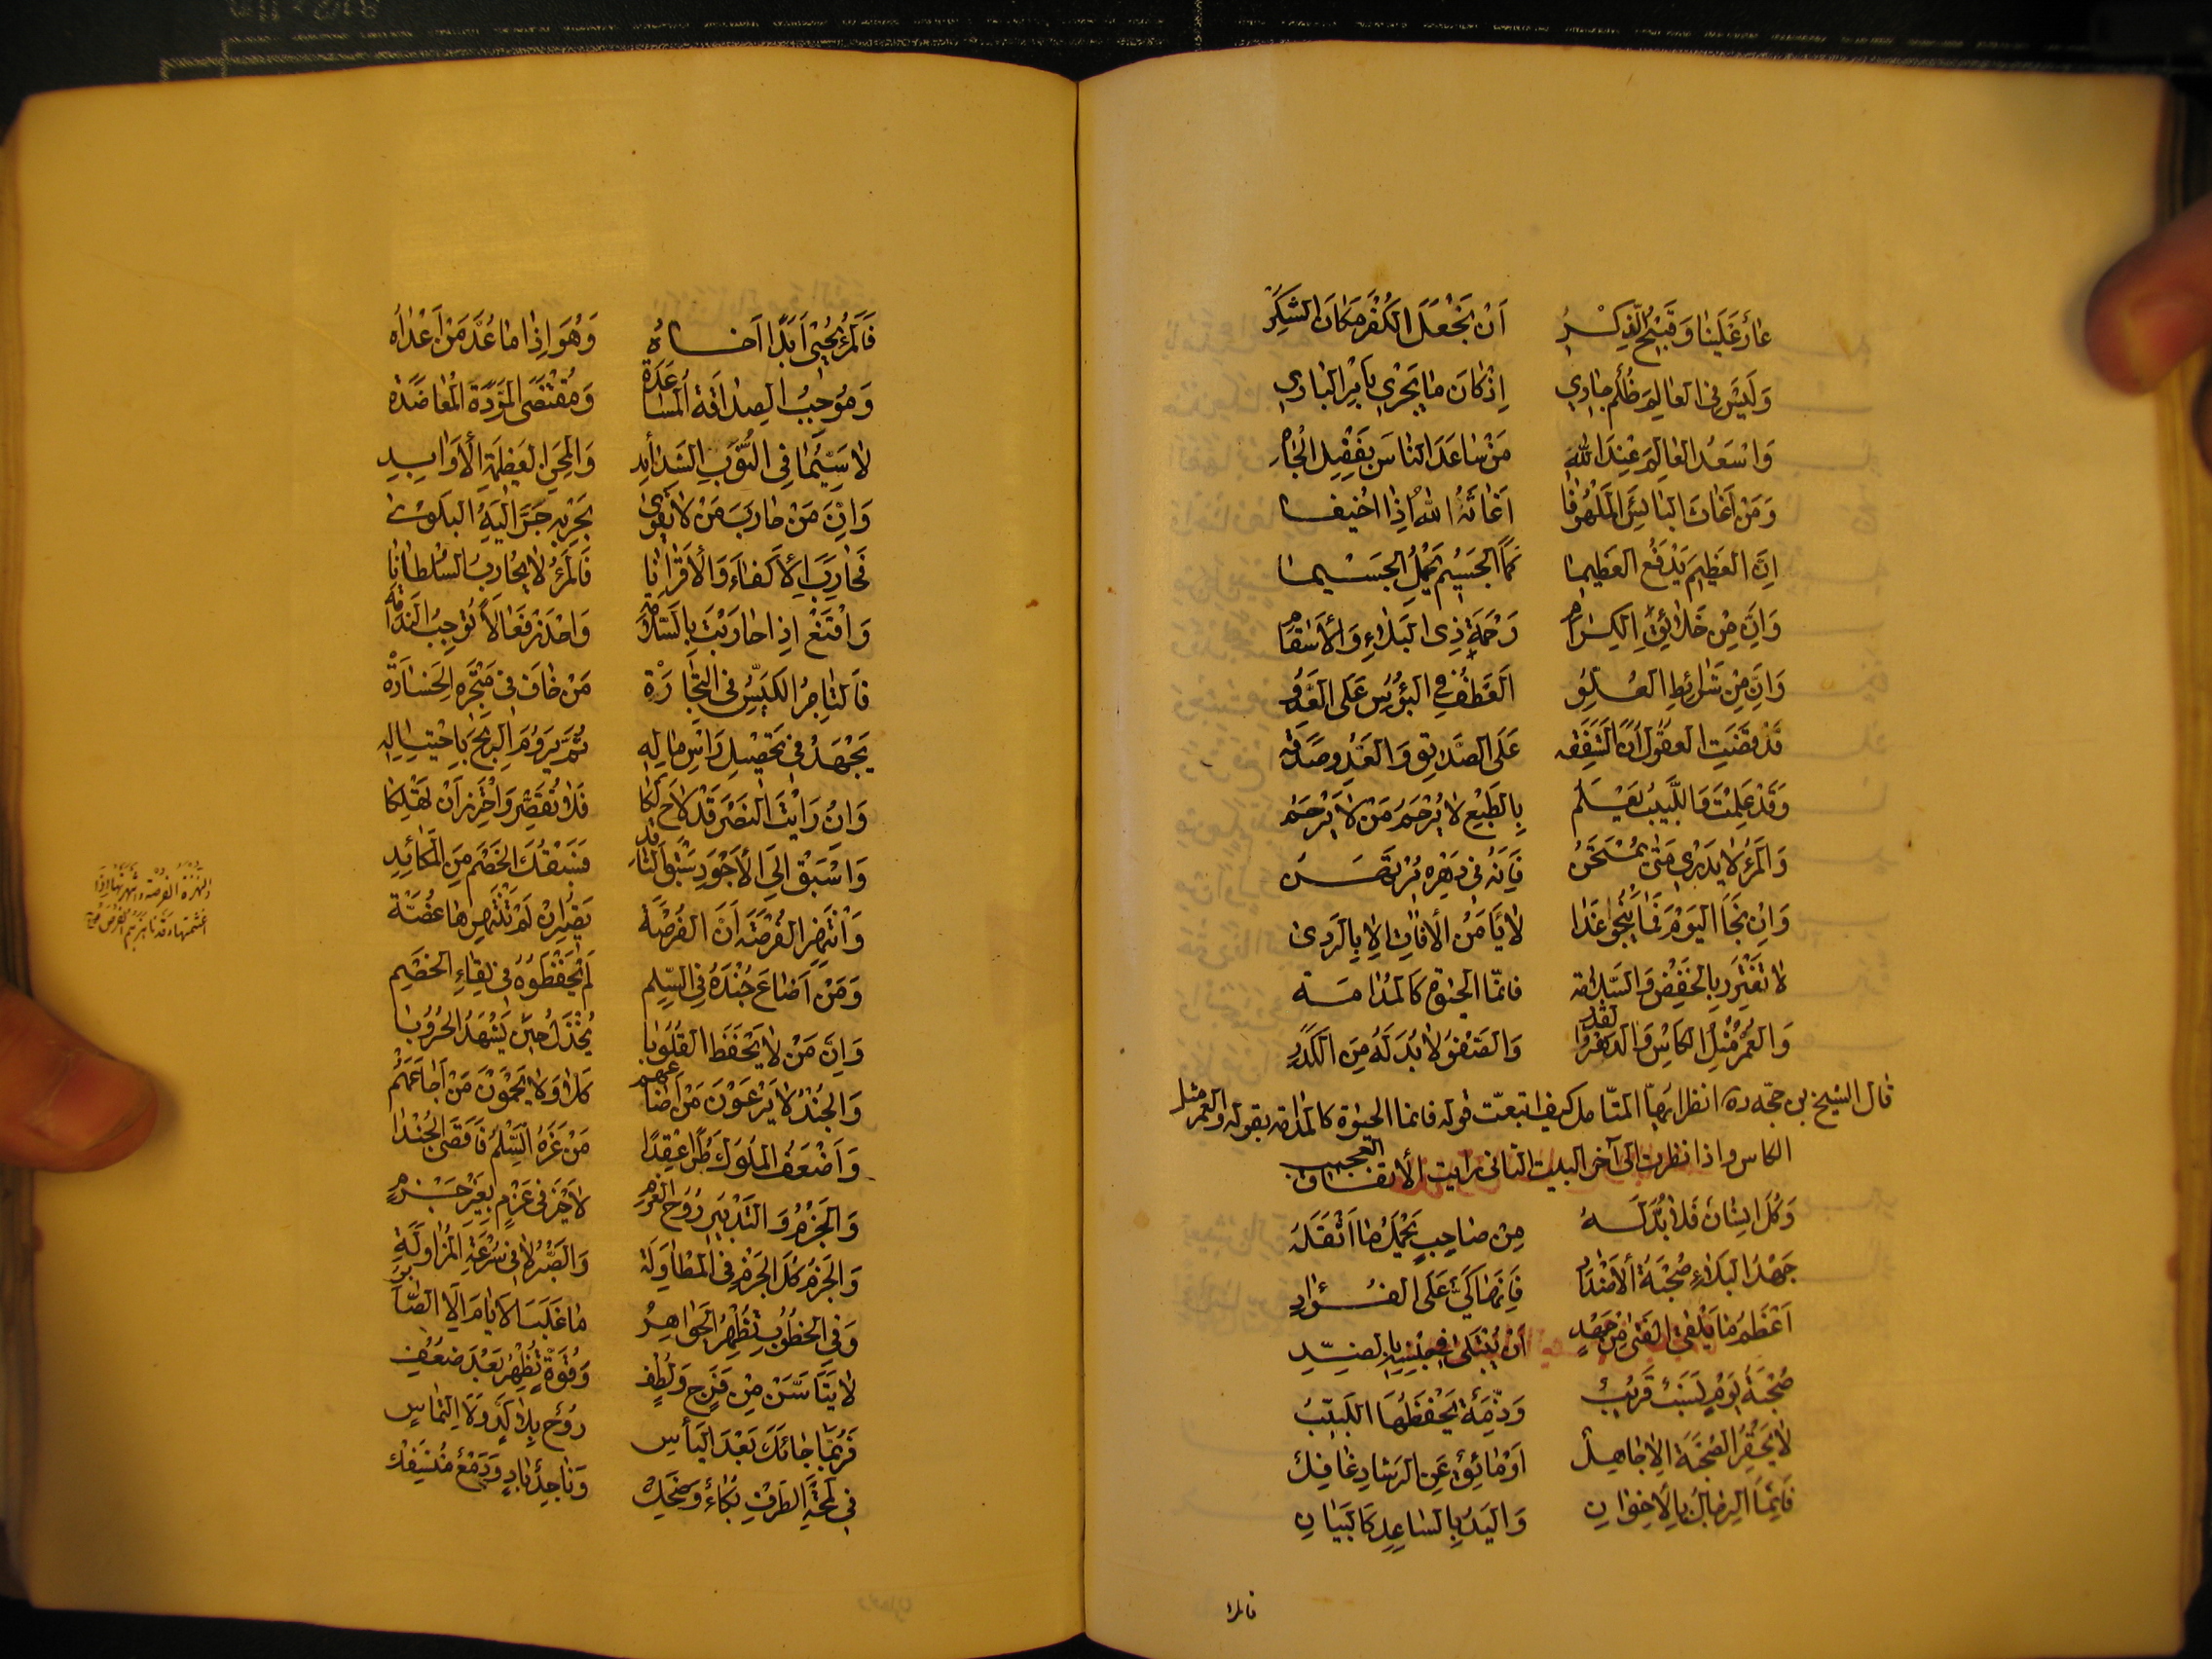 عَارٌ عَلَيْنَا وَقَبِيْحُ الذِّكْرِ اَنْ نَجْعَلَ الْكُفْرَ مَكَانَ الشُّكْرِ
وَلَيْسَ فِي الْعَالَمِ ظُلْمٌ جَارِي اِذْ كَانَ مَا يَجْرِي بِاَمْرِ الْبَارِي
وَاَسْعَدُ الْعَالَمِ عِنْدَ اللهِ مَنْ سَاعَدَ النَّاسَ بِفَضْلِ الْجَاهِ
وَمَنْ اَغَاثَ الْبَائِسَ الْمَلْهُوْفَا اَغَاثَهُ اللهُ اِذَا اُخِيْفَا
اِنَّ الْعَظِيْمَ يَدْفَعُ الْعَظِيْمَا كَمَا الْجَسِيْمُ يَحْمِلُ الْجَسِيْمَا
وَاِنَّ مِنْ خَلَائِقِ الْكِرَامِ رَحْمَةَ ذِي الْبَلَاءِ وَالْاَسْقَامِ
وَاِنَّ مِنْ شَرَائِطِ الْعُلُوِّ اَلْعَطْفُ فِي الْبُؤْسِ عَلَى الْعَدُوِّ
قَدْ قَضَتِ الْعُقُوْلُ اَنَّ الشَّفَقَه عَلَى الصَّدِيْقِ وَالْعَدُوِّ صَدَقَه
وَقَدْ عَلِمْتَ وَاللَّبِيْبُ يَعْلَمُ بِالطَّبْعِ لَا يُرْحَمُ مَنْ لَا يَرْحَمُ
وَالْمَرْءُ لَا يَدْرِي مَتٰى يُمْتَحَنُ فَاِنَّهُ فِي دَهْرِهِ مُرْتَهَنُ
وَاِنْ نَجَا الْيَوْمَ فَمَا يَنْجُو غَدَا لَا يَأْمَنُ الْآفَاتِ اِلَّا بِالرَّدٰى
لَا تَغْتَرِرْ بِالْخَفْضِ وَالسَّلَامَة فَاِنَّمَا الْحَيٰوةُ كَالْمُدَامَة
وَالْعُمْرُ مِثْلُ الْكَأْسِ وَالدَّهْرُ الْقَذِرُ وَالصَّفْوُ لَا بُدَّ لَهُ مِنَ الْكَدَرِ
قال الشيخ بن حجّه ره انظر ايها المتأمل كيف اتبعت قوله فانما الحيٰوة كالمدامه بقوله والعمر مثل
الكاس واذا نظرت الى آخر البيت الثانى رايت الاتفاق العجيب
وَكُلُّ اِنْسَانٍ فَلَا بُدَّ لَهُ مِنْ صَاحِبٍ يَحْمِلُ مَا اَثْقَلَهُ
جَهْدُ الْبَلَاءِ صُحْبَةُ الْاَضْدَادِ فَاِنَّهَا كَيٌّ عَلَى الْفُؤَادِ
اَعْظَمُ مَا يَلْقَى الْفَتٰى مِنْ جَهْدِ اَنْ يُبْتَلٰى فِي جِنْسِهِ بِالضِّدِّ
صُحْبَةُ يَوْمٍ نَسَبٌ قَرِيْبُ وَذِمَّةٌ يَحْفَظُهَا اللَّبِيْبُ
لَا يَحْقِرُ الصُّحْبَةَ اِلَّا جَاهِلُ اَوْ مَائِقٌ عَنِ الرَّشَادِ غَافِلُ
فَاِنَّمَا الرِّجَالُ بِالْاِخْوَانِ وَالْيَدُ بِالسَّاعِدِ كَالْبَنَانِ
فالمرا
فَالْمَرْءُ يُحْيِي اَبَدًا اَخَاهُ وَهُوَ اِذَا مَا عُدَّ مِنْ اَعْدَاهُ
وَمُوْجِبُ الصِّدَاقَةِ الْمُسَاعَدَة وَمُقْتَضَى الْمَوَدَّةِ الْمُعَاضَدَة
لَا سِيَّمَا فِي النُّوَبِ الشَّدَائِدِ وَالْمِحَنِ الْعَظِيْمَةِ الْاَوَابِدِ
وَاِنَّ مَنْ حَارَبَ مَنْ لَا يَقْوٰى بِحَرْبِهِ جَرَّ اِلَيْهِ الْبَلْوٰى
فَحَارِبِ الْاَكْفَاءَ وَالْاَقْرَانَا فَالْمَرْءُ لَا يُحَارِبُ السُّلْطَانَا
وَاقْنَعْ اِذَا حَارَبْتَ بِالسَّلَامَة وَاحْذَرْ فَعَالًا تُوْجِبُ النَّدَامَة
فَالتَّاجِرُ الْكَيِّسُ فِي التِّجَارَة مَنْ خَافَ فِي مَتْجَرِهِ الْخَسَارَة
يَجْهَدُ فِي تَحْصِيْلِ رَأْسِ مَالِهِ ثُمَّ يَرُوْمُ الرِّبْحَ بِاحْتِيَالِهِ
وَاِنْ رَاَيْتَ النَّصْرَ قَدْ لَاحَ لَكَا فَلَا تُقَصِّرْ وَاحْتَرِزْ اَنْ تَهْلِكَا
وَاسْبِقْ اِلَى الْاَجْوَدِ سَبْقَ النَّاقِدِ فَسَبْقُكَ الْخَصْمَ مِنَ الْمَكَائِدِ
وَانْتَهِزِ الْفُرْصَةَ اَنَّ الْفُرْصَة تَصِيْرُ اِنْ لَمْ تَنْتَهِزْهَا غُصَّة
وَمَنْ اَضَاعَ جُنْدَهُ فِي السِّلْمِ لَمْ يَحْفَظُوْهُ فِي لِقَاءِ الْخَصْمِ
وَاِنَّ مَنْ لَا يَحْفَظُ الْقُلُوْبَا يُخْذَلُ حِيْنَ يَشْهَدُ الْحُرُوْبَا
وَالْجُنْدُ لَا يَرْعَوْنَ مَنْ اَضَاعَهُمْ كَلَّا وَلَا يَحْمُوْنَ مَنْ اَجَاعَهُمْ
وَاَضْعَفُ الْمُلُوْكِ طُرًّا عِقْدَا مَنْ غَرَّهُ السِّلْمُ فَاَقْصَى الْجُنْدَا
وَالْحَزْمُ وَالتَّدْبِيْرُ رُوْحُ الْعَزْمِ لَا خَيْرَ فِي عَزْمٍ بِغَيْرِ حَزْمِ
وَالْحَزْمُ كُلُّ الْحَزْمِ فِي الْمُطَاوَلَة وَالصَّبْرُ لَا فِي سُرْعَةِ الْمُزَاوَلَة
وَفِي الْخُطُوْبِ تَظْهَرُ الْجَوَاهِرُ مَا غَلَبَ الْاَيَّامَ اِلَّا الصَّابِرُ
لَا يَتَأَسَنْ مِنْ فَرَجٍ وَلُطْفِ وَقُوَّةٍ تَظْهَرُ بَعْدَ ضَعْفِ
فَرُبَّمَا جَائَكَ بَعْدَ الْيَأْسِ رُوْحٌ بِلَا كَدٍّ وَلَا الْتِمَاسِ
فِي لَمْحَةِ الطَّرْفِ بُكَاءٌ وَضَحِكْ وَنَاجِذٌ بَادٍ وَدَمْعٌ مُنْسَفِكْ
النُهْزَة الفُرْصَة وانتهزتها اذا
اغتنمتها